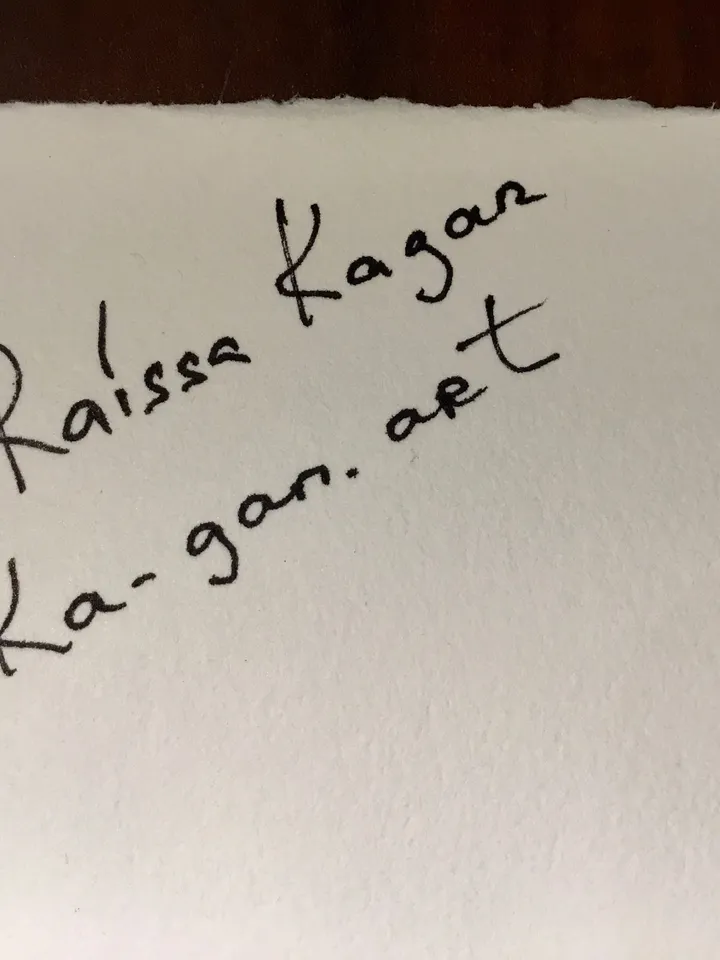 Raissa Kagan
Ka-gan.art